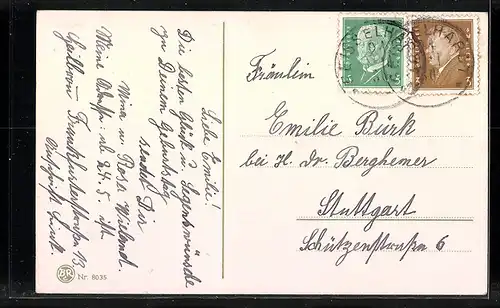 Liebe Emilie!
Die besten Glück u. Segenswünsche
zu Deinem Geburtstag
sendet Dir
Mina u. Rosa Wieland.
Meine Adresse: ab 24. 5. ist
Heilbronn Frankfurterstraße 13
Fräulein
Emilie Bürk
bei H. Dr. Berghemer
Stuttgart
Schützenstraße 6
Nr. 8035